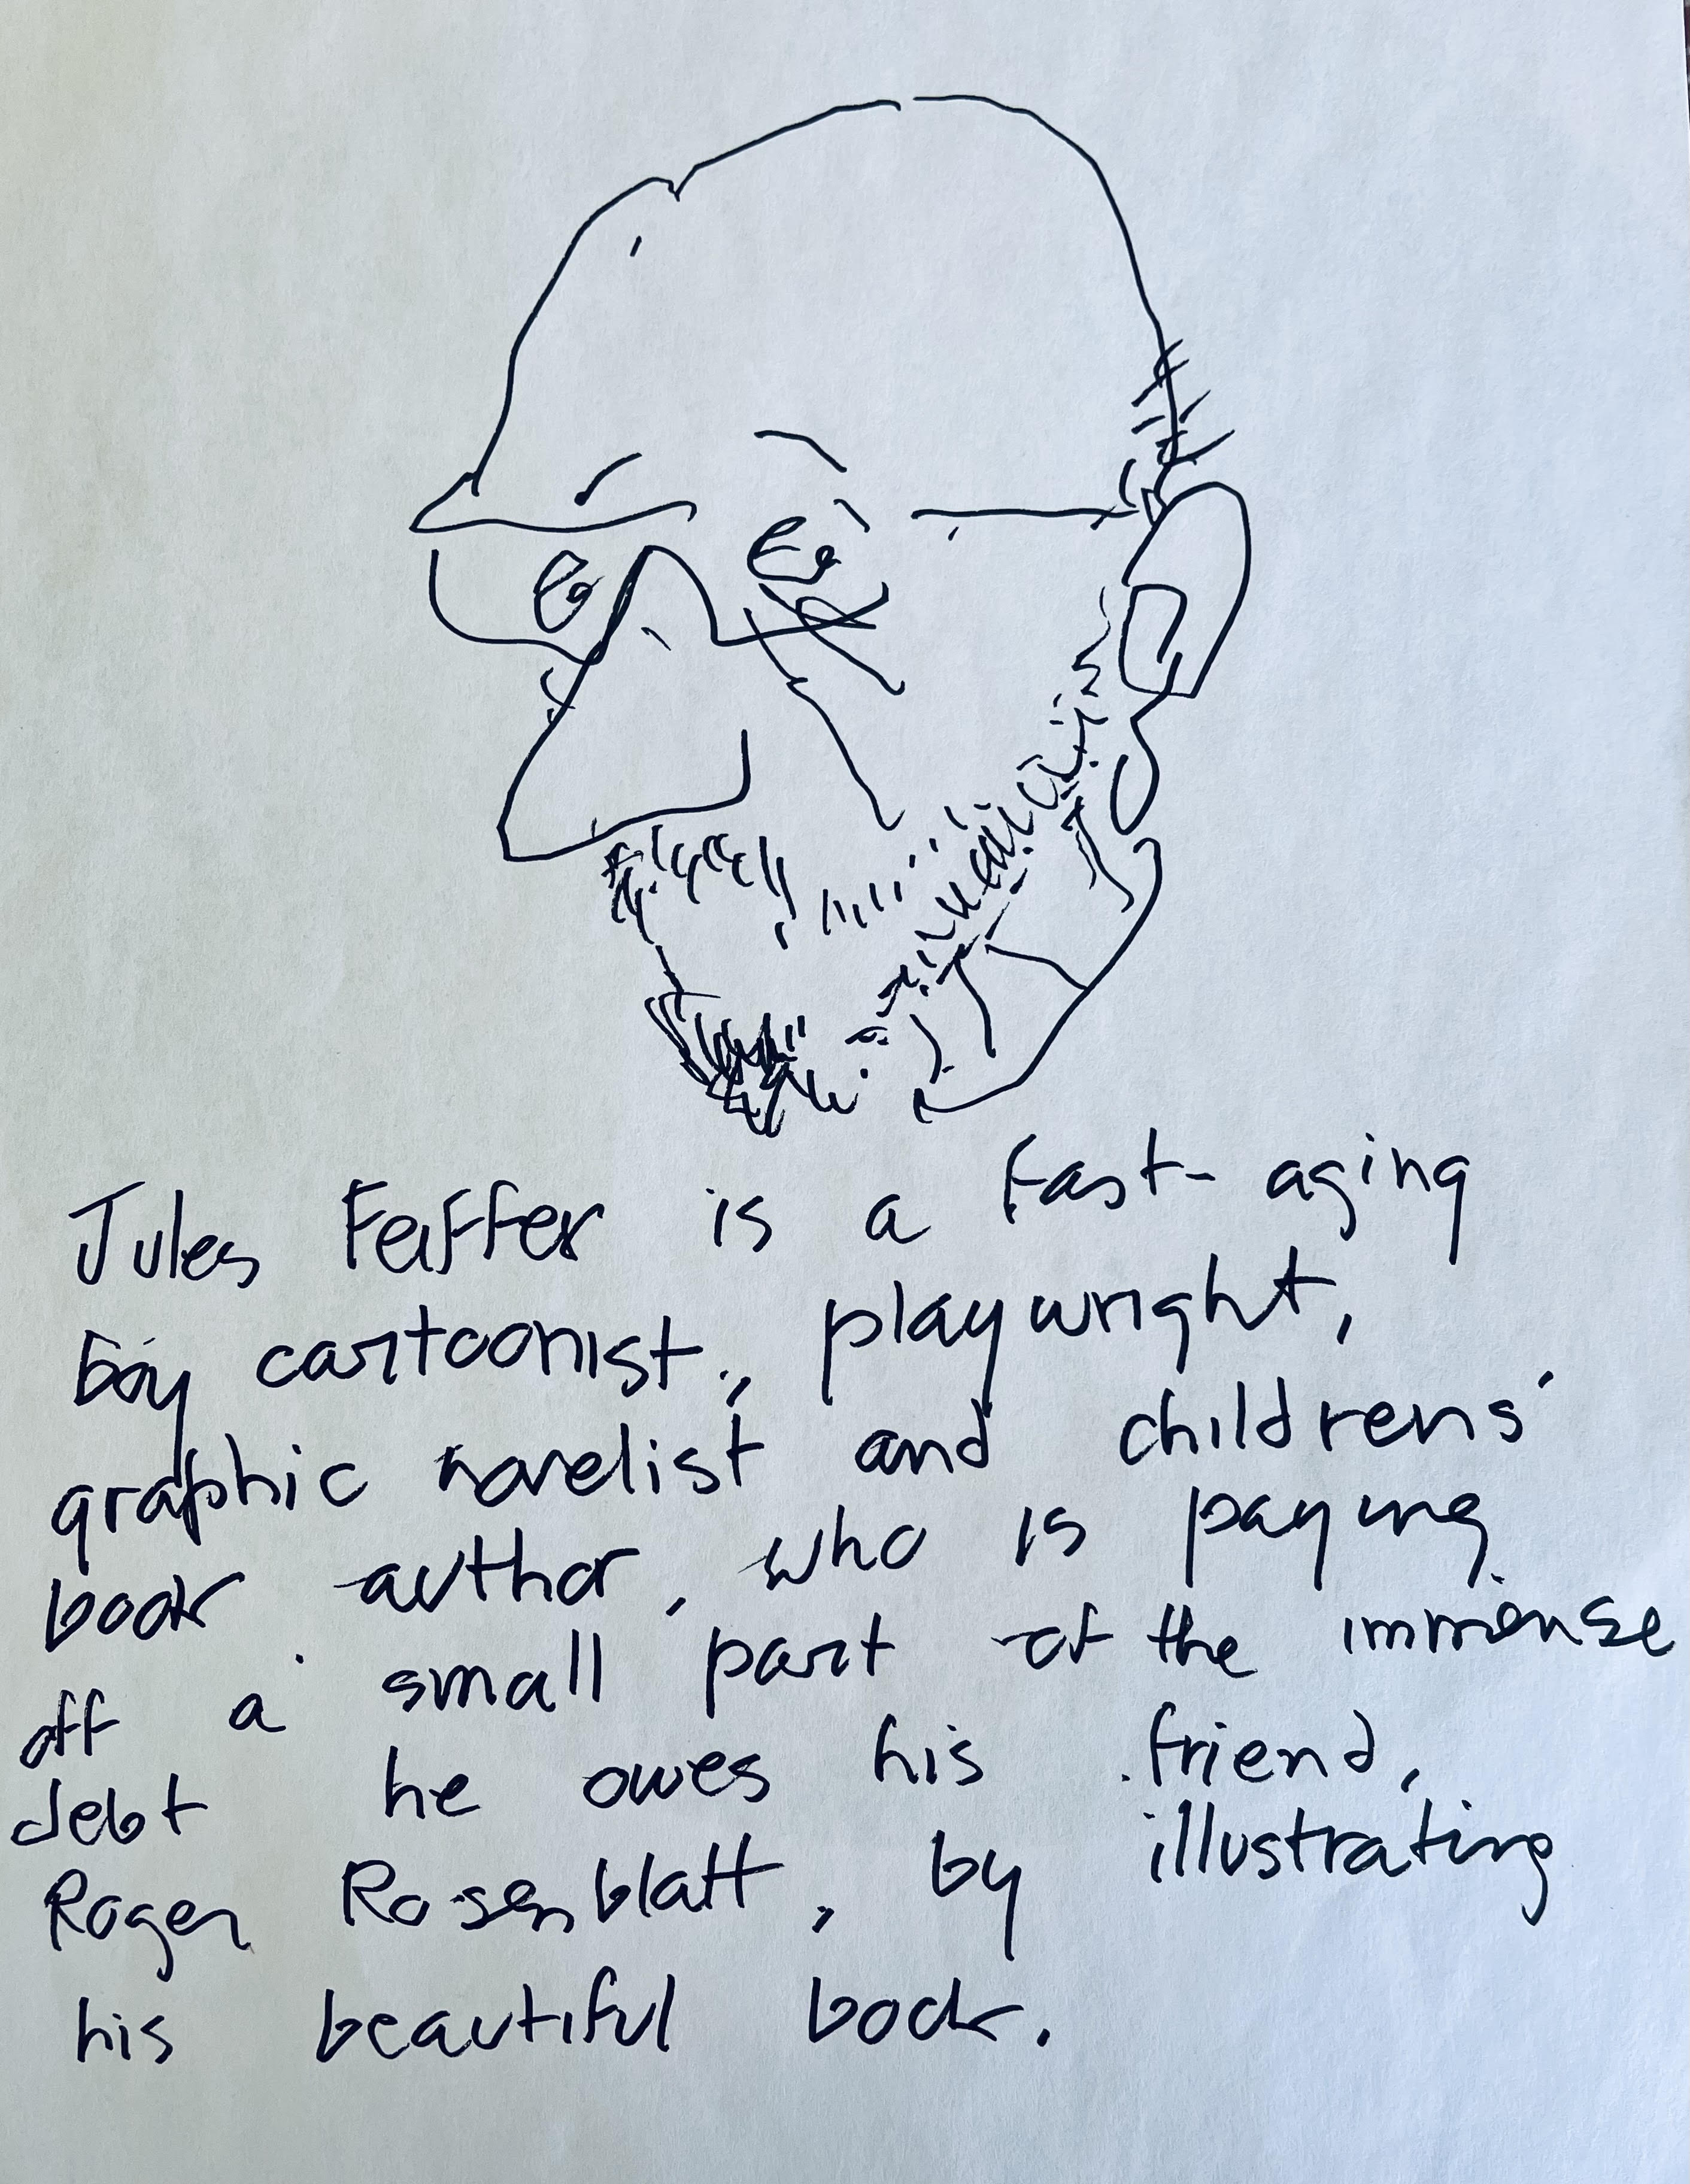 Jules Feiffer is a fast-aging
boy cartoonist, playwright,
graphic novelist and childrens'
book author, who is paying
off a small part of the immense
debt he owes his friend,
Roger Rosenblatt, by illustrating
his beautiful book.